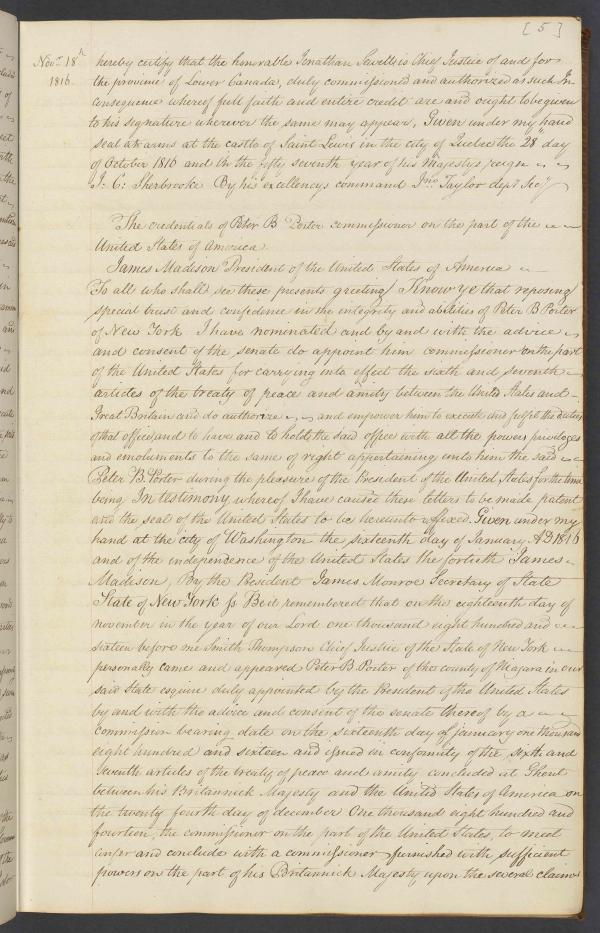 [5]
Novr 18th
1816.
hereby certify that the honorable Jonathan Sewell is Chief Justice of and for
the province of Lower Canada, duly commissioned and authorized as such In
consequence whereof full faith and entire credit are and ought to be given
to his signature wherever the same may appear, Given under my hand
seal at arms at the castle of Saint Lewis in the city of Quebec the 28th day
of October 1816 and in the fifty seventh year of his Majestys reign
J: C: Sherbrooke By his excellencys command Jno Taylor dept Secy
The credentials of Peter B Porter commissioner on the part of the
United States of America.
James Madison President of the United States of America
To all who shall see these presents greeting Know ye that reposing
special trust and confidence in the integrity and abilities of Peter B Porter
of New York I have nominated and by and with the advice
and consent of the senate do appoint him commissioner on the part
of the United States for carrying into effect the sixth and seventh
articles of the treaty of peace and amity between the United States and
Great Britain and do authorize and empower him to execute and fulfil the duties
of that office and to have and to hold the said office with all the powers privileges
and emoluments to the same of right appertaining unto him the said
Peter B. Porter during the pleasure of the President of the United States for the time
being In testimony whereof I have caused these letters to be made patent
and the seal of the United States to be hereunto affixed. Given under my
hand at the city of Washington the sixteenth day of January AD 1816
and of the independence of the United States the fortieth James
Madison, By the President James Monroe Secretary of State
State of New York Ss Be it remembered that on the eighteenth day of
november in the year of our Lord one thousand eight hundred and
sixteen before me Smith Thompson Chief Justice of the State of New York
personally came and appeared Peter B. Porter of the county of Niagara in our
said State esquire duly appointed by the President of the United States
by and with the advice and consent of the senate thereof by a
commission bearing date on the sixteenth day of january one thousand
eight hundred and sixteen and issued in conformity of the sixth and
seventh articles of the treaty of peace and amity concluded at Ghent
between his Britannick Majesty and the United States of America on
the twenty fourth day of december One thousand eight hundred and
fourteen, the commissioner on the part of the United States, to meet
confer and conclude with a commissioner furnished with sufficient
powers on the part of his Britannick Majesty upon the several claims